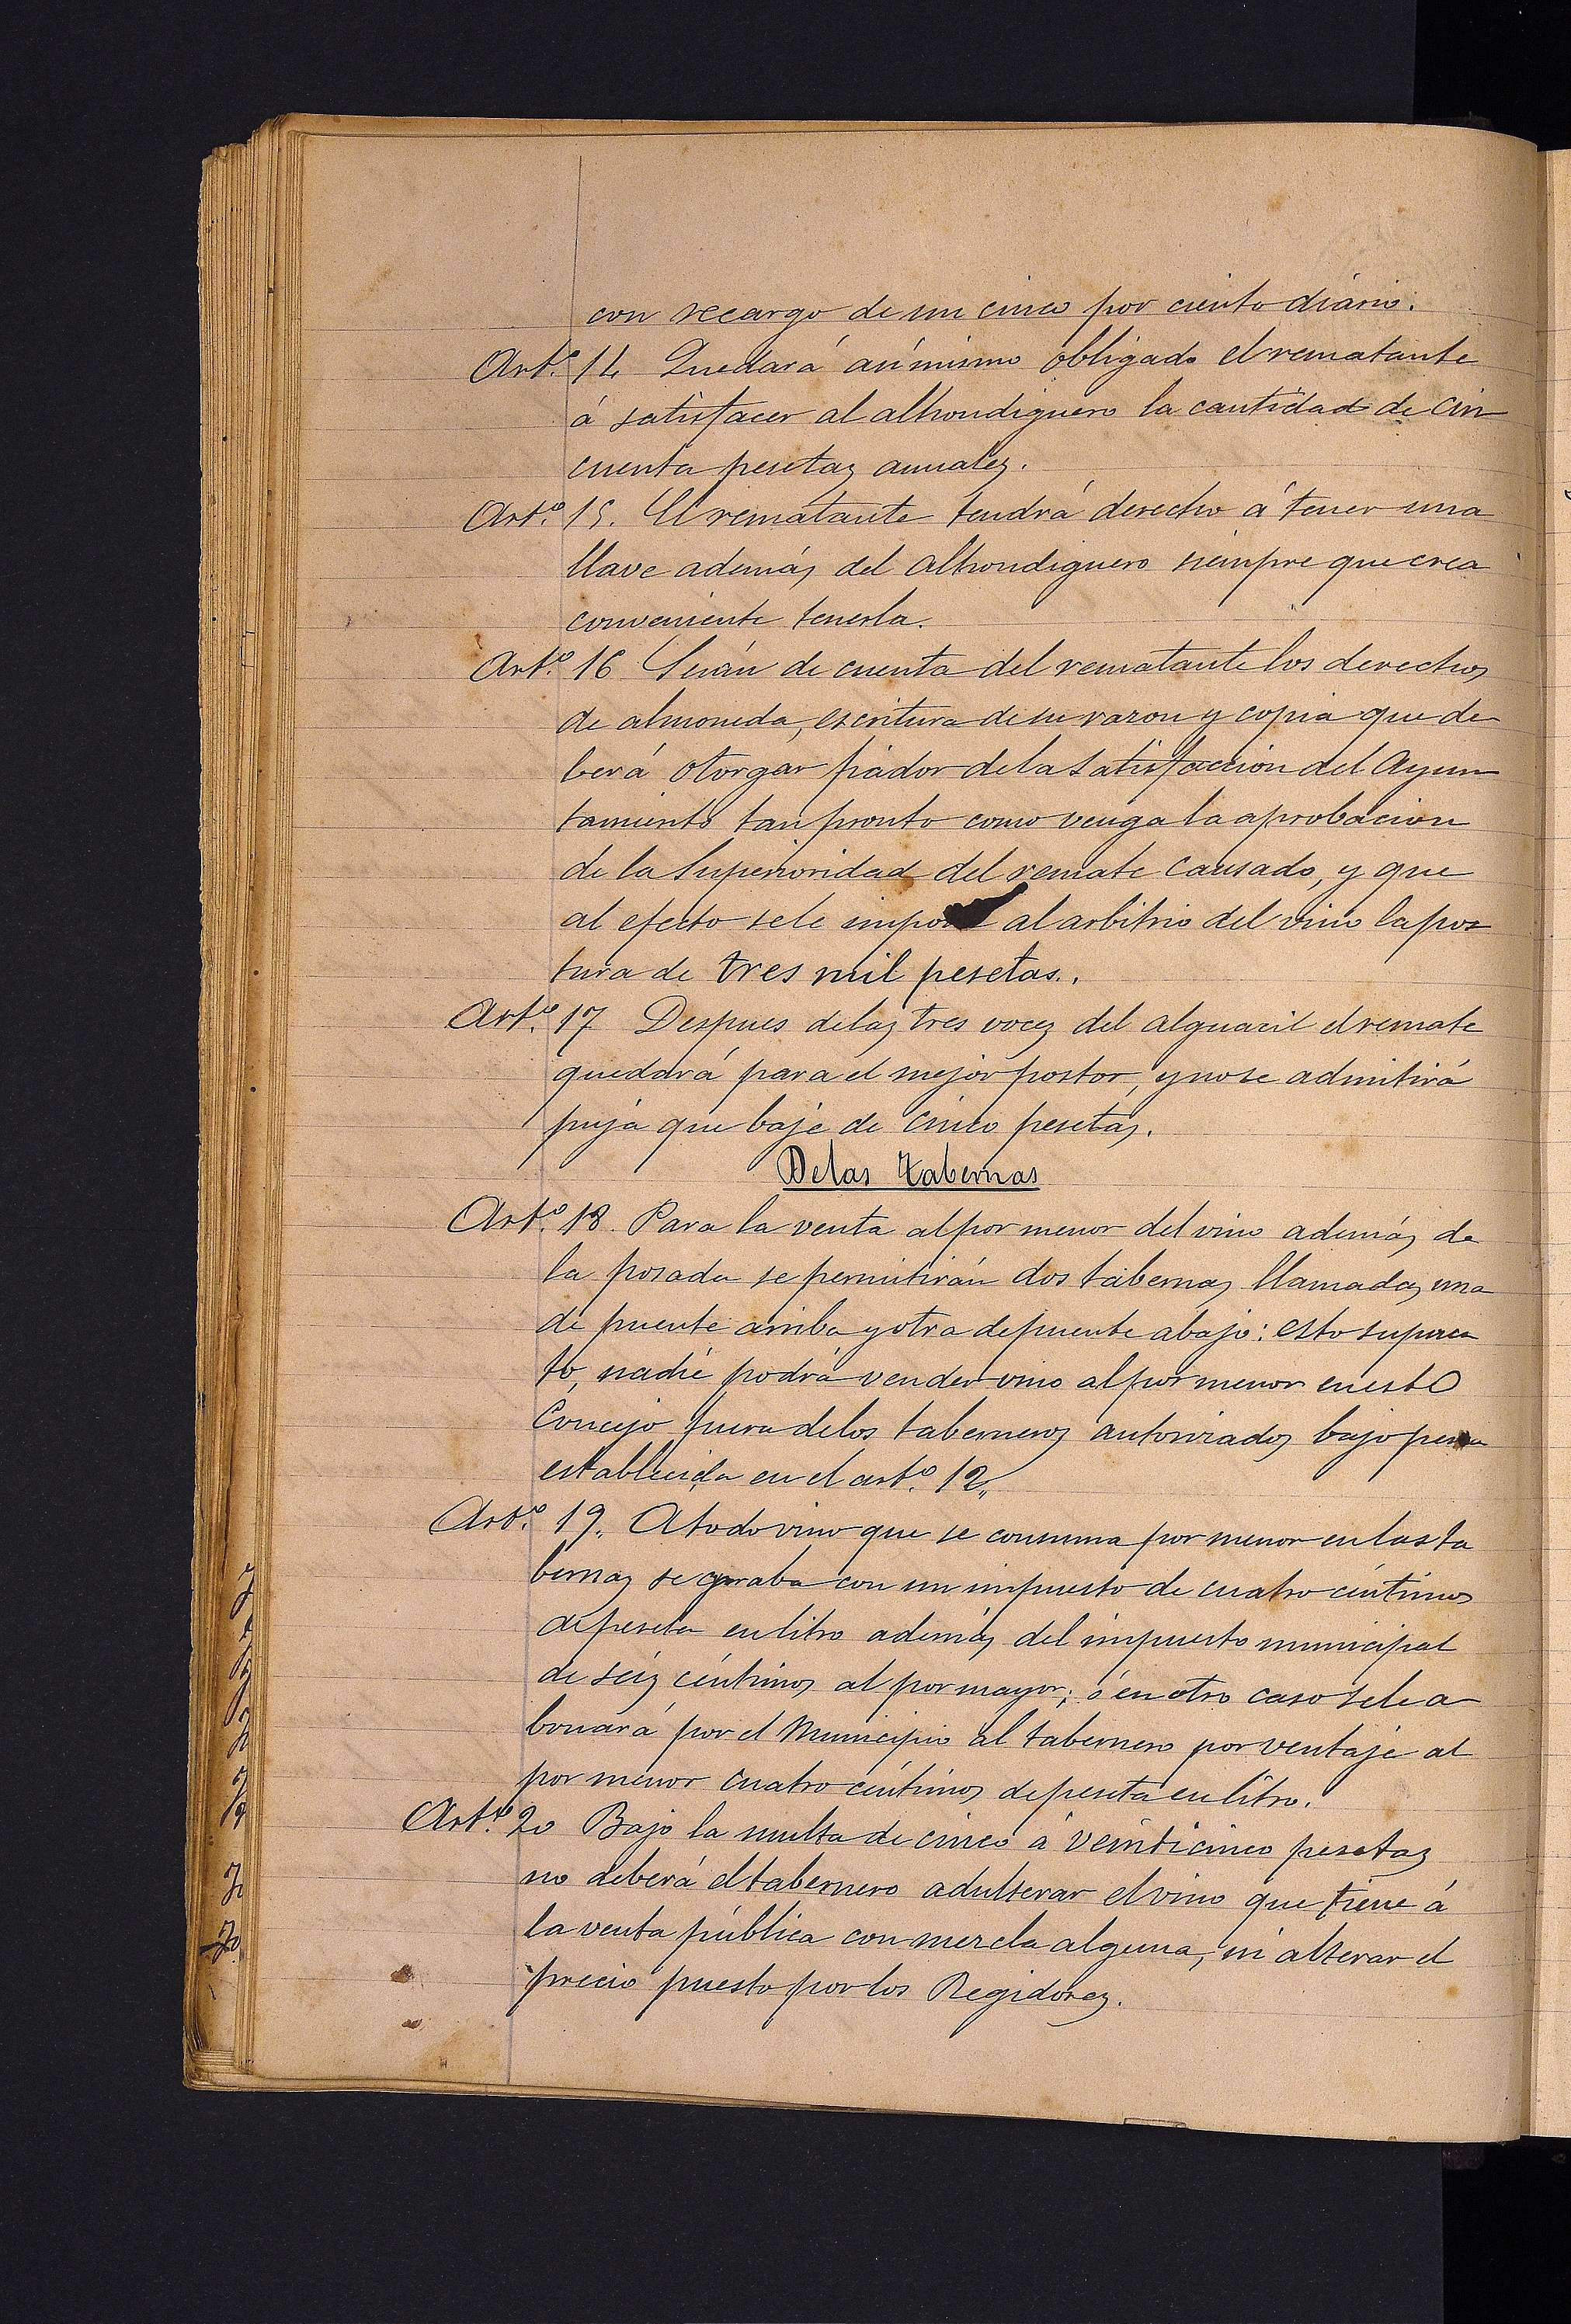 con recargo de un cinco por ciento diário.
Artº. 14 Quedará asímismo obligado el rematante
á satisfacer al alhondiguero la cantidad de cin
cuenta pesetas anuales.
Artº. 15. El rematante tendrá derecho á tener una
llave además del alhondiguero siempre que crea
conveniente tenerla.
Artº. 16 Serán de cuenta del rematante los derechos
de almoneda, escritura de su razon y copia que de
berá otorgar fiador de la satisfaccion del Ayun
tamiento tan pronto como venga la aprobacion
de la Superioridad del remate causado, y que
al efecto se le impone al arbitrio del vino la pos
tura de tres mil pesetas.
Artº. 17 Despues de las tres voces del alguacil el remate
quedará para el mejor postor, y no se admitirá
puja que baje de cinco pesetas.
De las tabernas
Artº. 18. Para la venta al por menor del vino además de
la posada se permitirán dos tabernas llamadas una
de puente arriba y otra de puente abajo: esto supues
to, nadie podrá vender vino al por menor en este
Concejo fuera de los taberneros autorizados bajo pena
establecida en el artº. 12.
Artº. 19. A todo vino que se consuma por menor en las ta
bernas se graba con un impuesto de cuatro céntimos
de peseta en litro además del impuesto municipal
de seis céntimos al por mayor; ó en otro caso se le a
bonará por el Municipio al tabernero por ventaje al
por menor cuatro céntimos de peseta en litro.
Artº. 20 Bajo la multa de cinco á veinticinco pesetas
no deberá el tabernero adulterar el vino que tiene á
la venta pública con mezcla alguna, ni alterar el
precio puesto por los Regidores.